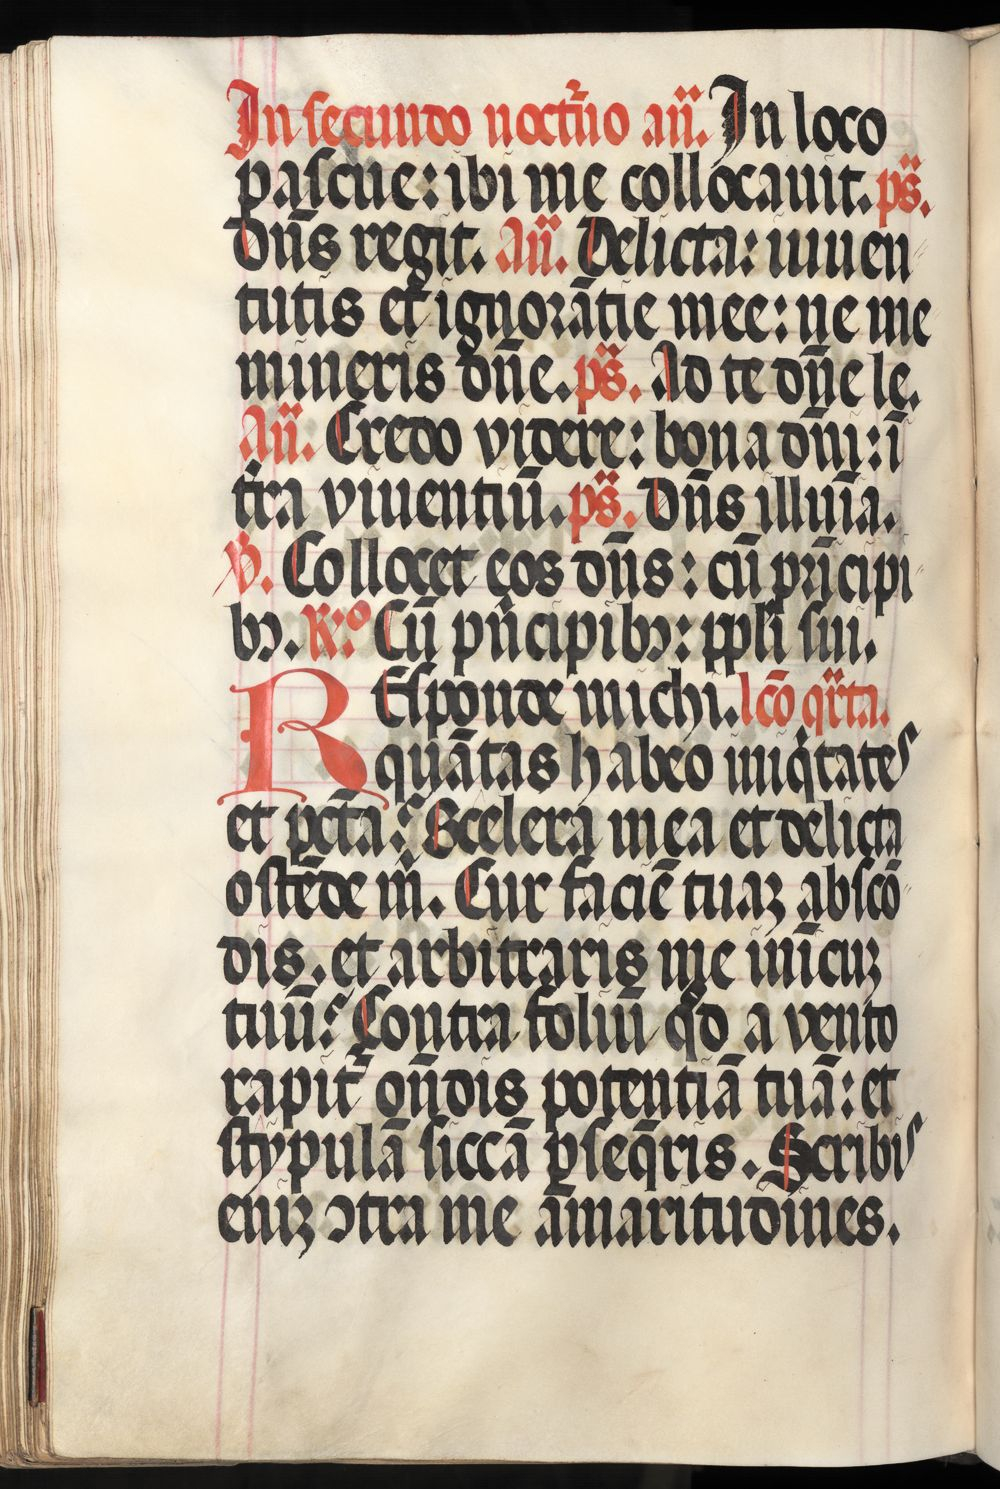 In secundo noct᷑no añ. In loco
pascue: ibi me collocauit. ps̃.
Dñs regit. Añ. Delicta: iuuen
tutis et ignorãtie mee: ne me
mineris dñe. ps̃. Ad te dñe le.
Añ. Credo videre: bona dñi: ĩ
tr̃a viuentiũ. ps̃. Dñs illuĩa.
℣. Collocet eos dñs: cũ prĩcipi
bꝫ. R̃o Cũ pͥncipibꝫ: ppl̃i sui.
REsponde michi. lcõ qr̃ta.
quãtas habeo iniqͥtates
et pctã? Scelera mea et delicta
ostẽde mͥ. Cur faciẽ tuaꝫ abscõ
dis. et arbitraris me inĩcuꝫ
tuũ? Contra foliũ qd̃ a vento
rapit᷑ oñdis potentiã tuã: et
stypulã siccã ꝑseq̃ris. Scribis
eniꝫ ꝯtra me ãmaritudines.